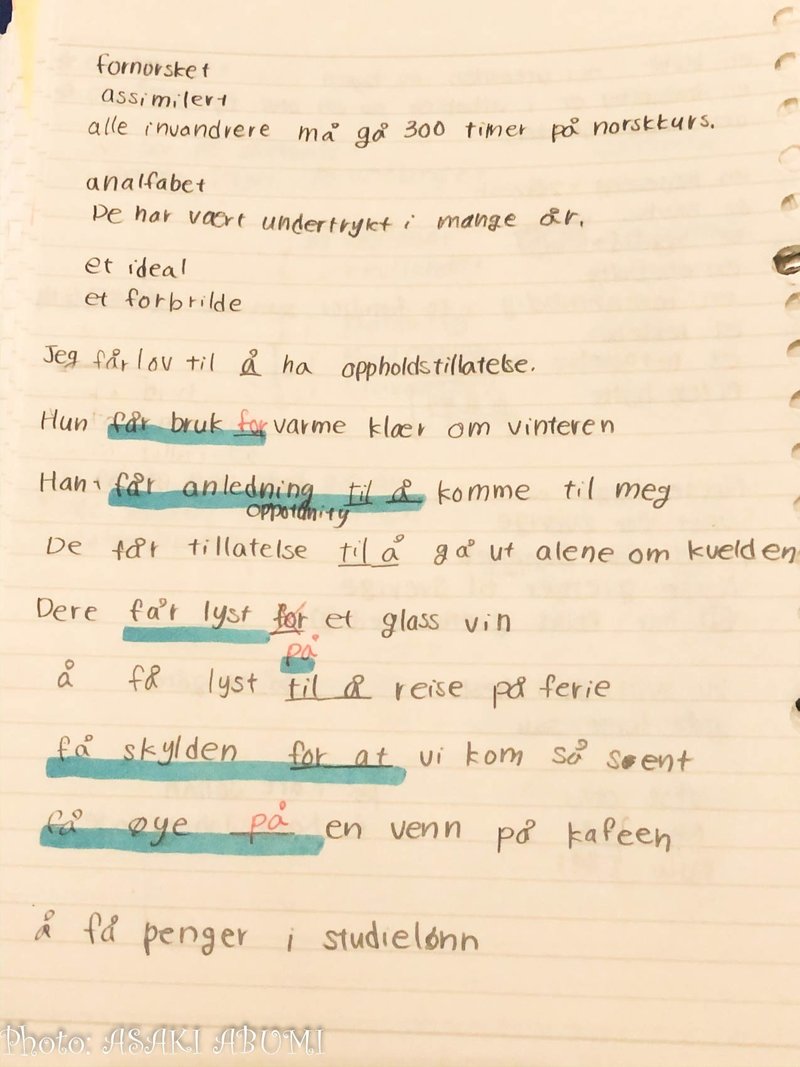 fornorsket
assimilert
alle invandrere må gå 300 timer på norskkurs.
analfabet
De har vært undertrykt i mange år.
et ideal
et forbrilde
Jeg får lov til å ha oppholdstillatelse.
Hun får bruk for varme klær om vinteren
Han får anledning til å komme til meg
oppotunity
De får tillatelse til å gå ut alene om kvelden
Dere får lyst for et glass vin
på
å få lyst til å reise på ferie
få skylden for at vi kom så sent
få øye på en venn på kafeen
å få penger i studielønn
Photo: ASAKI ABUMI